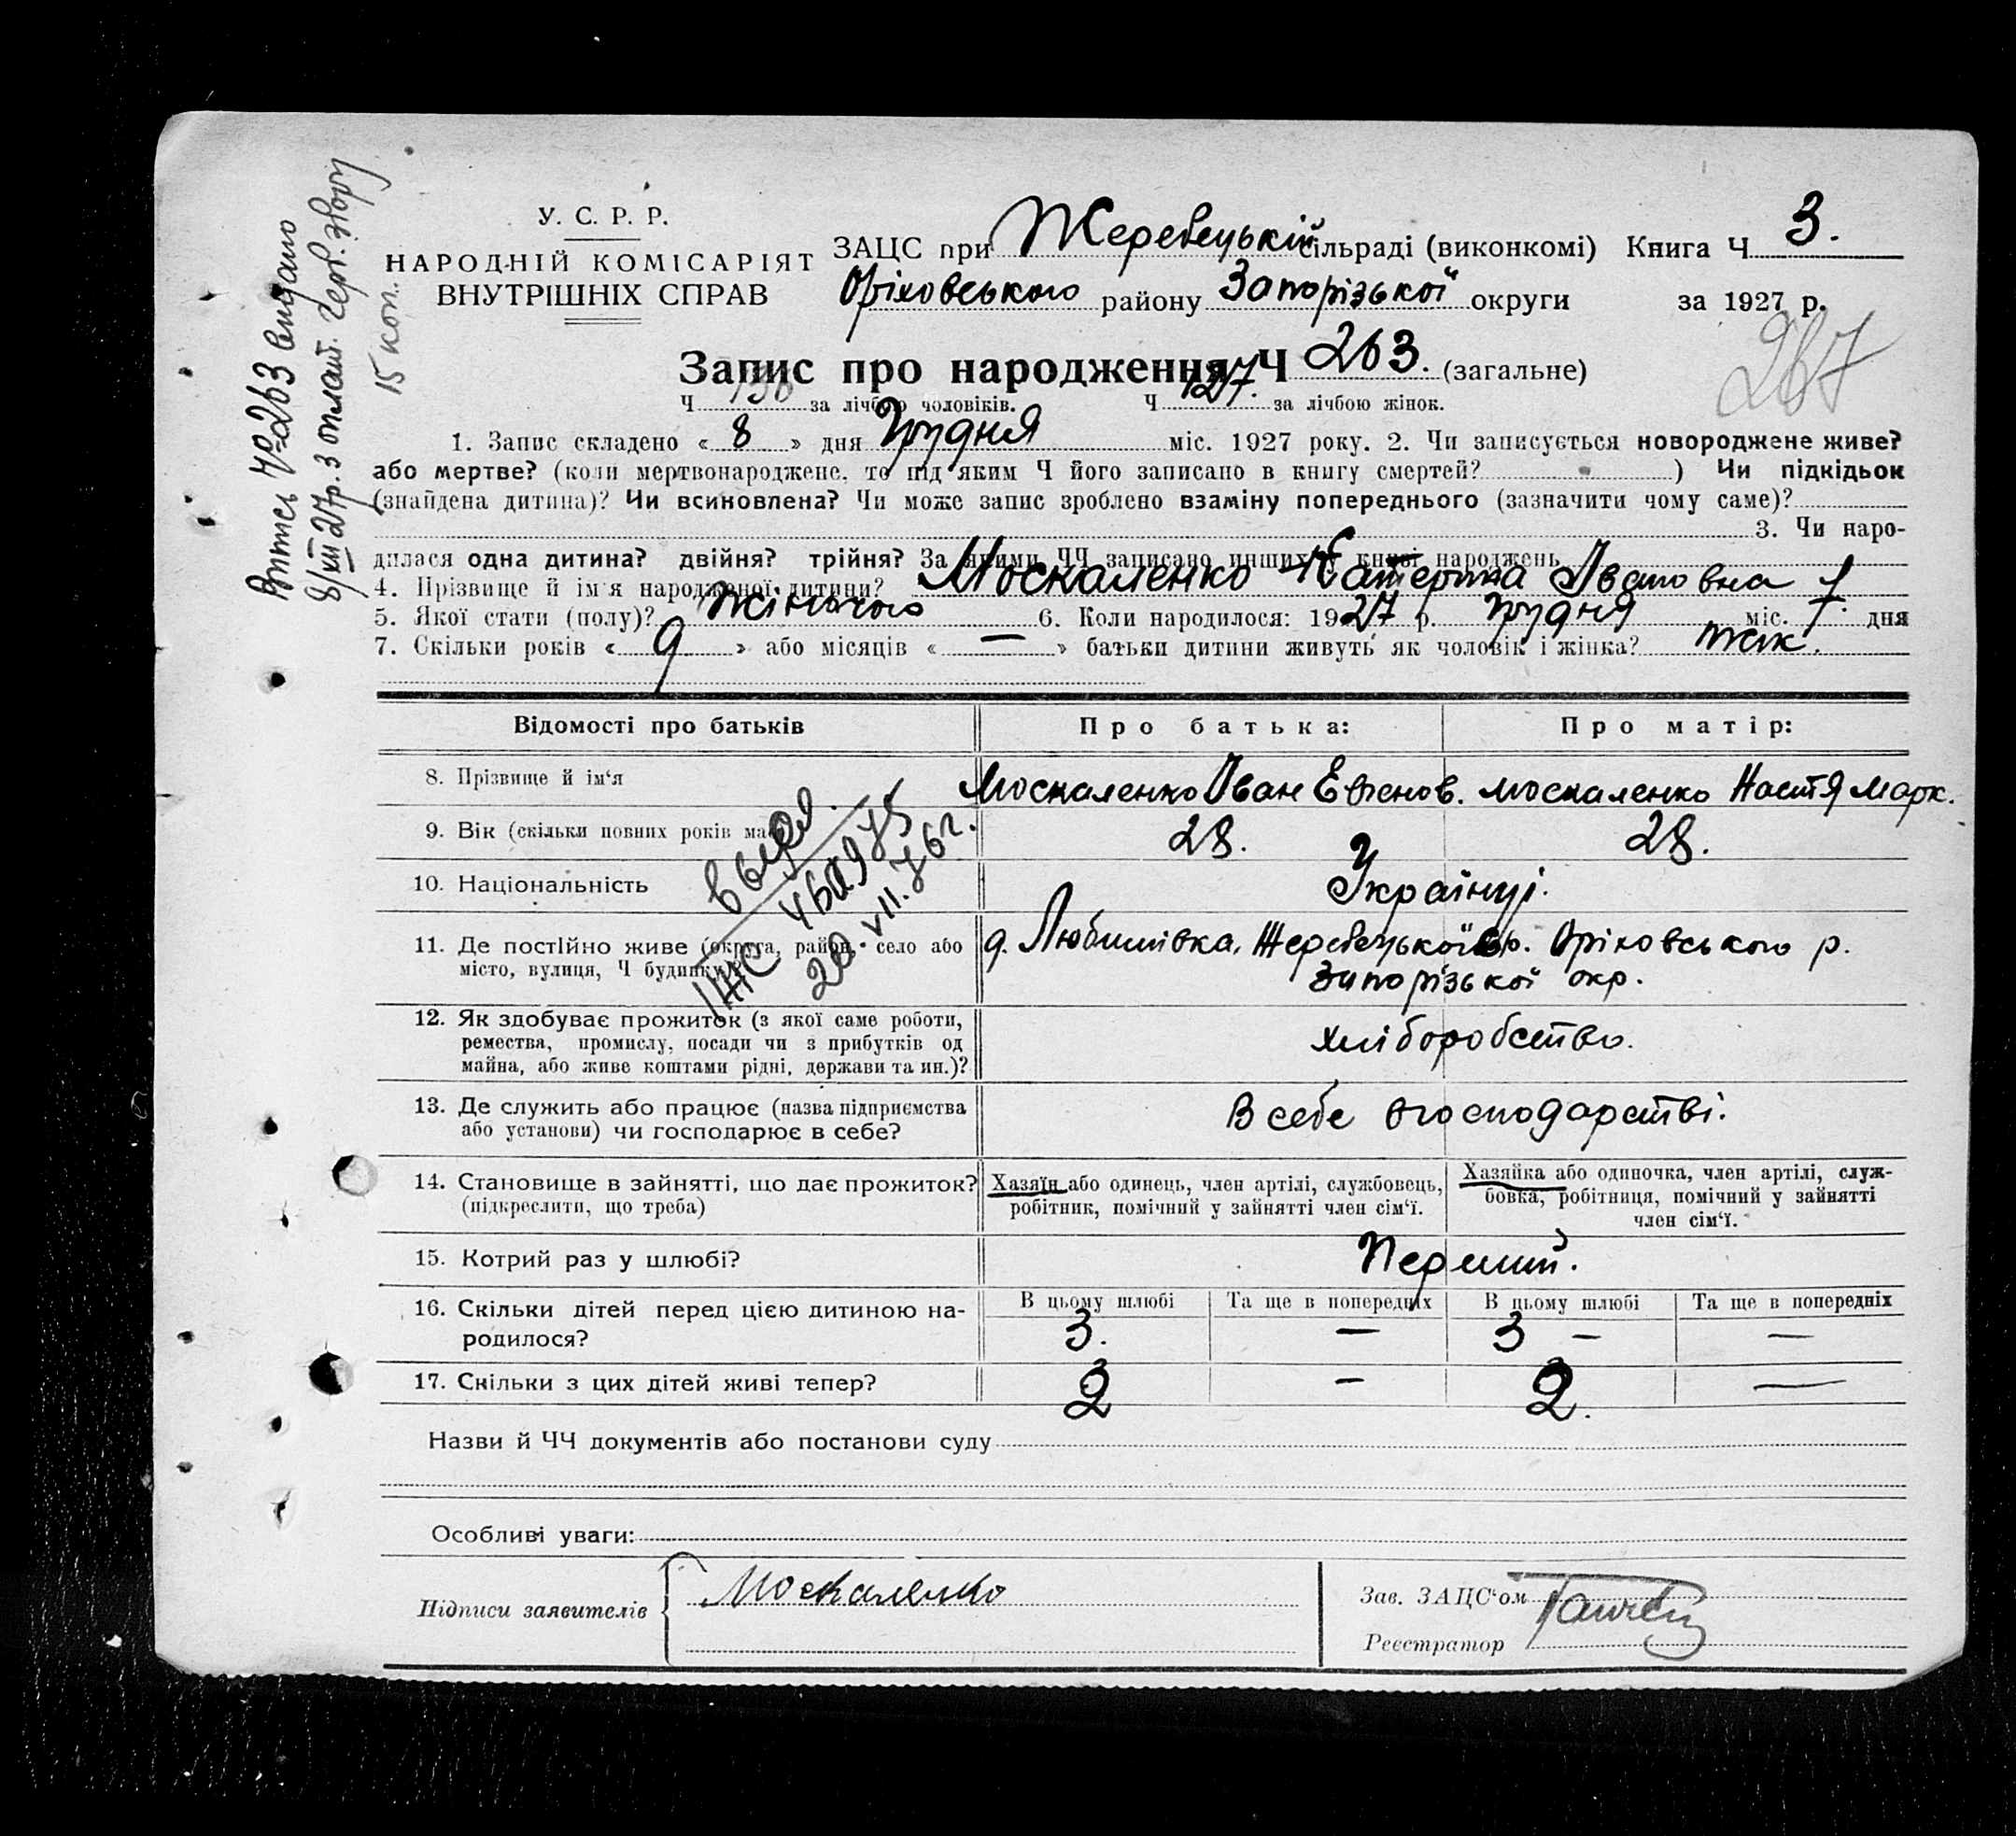 У. С. Р. Р.
НАРОДНІЙ КОМІСАРІЯТ
ВНУТРІШНІХ СПРАВ
ЗАЦС при Жеребецькій сільраді (виконкомі) Книга Ч 3.
Оріховського району Запорізької округи за 1927 р.
Запис про народження Ч 263. (загальне)
267
Ч 136 за лічбою чоловіків. Ч 127. за лічбою жінок.
1. Запис складено « 8 » дня Грудня міс. 1927 року. 2. Чи записується новороджене живе?
або мертве? (коли мертвонароджене, то під яким Ч його записано в книгу смертей? ) Чи підкідьок
(знайдена дитина)? Чи всиновлена? Чи може запис зроблено взаміну попереднього (зазначити чому саме)?
3. Чи наро-
дилася одна дитина? двійня? трійня? За якими ЧЧ записано инших у книзі народжень
4. Прізвище й ім'я народженої дитини? Москаленко Катерина Івановна
5. Якої стати (полу)? Жіночого 6. Коли народилося: 1927 р. Грудня міс. 7. дня
7. Скільки років « 9 » або місяців « — » батьки дитини живуть як чоловік і жінка? так.
Відомості про батьків Про батька: Про матір:
8. Прізвище й ім'я Москаленко Іван Евгенов. Москаленко Настя Марк.
9. Вік (скільки повних років має) 28. 28.
10. Національність Українці.
11. Де постійно живе (округа, район, село або д. Любимівка, Жеребецької с/р. Оріховського р.
місто, вулиця, Ч будинку) Запорізької окр.
12. Як здобуває прожиток (з якої саме роботи,
ремества, промислу, посади чи з прибутків од хліборобство.
майна, або живе коштами рідні, держави та ин.)?
13. Де служить або працює (назва підприємства В себе вгосподарстві.
або установи) чи господарює в себе?
14. Становище в зайнятті, що дає прожиток? Хазяїн або одинець, член артілі, службовець, Хазяйка або одиночка, член артілі, служ-
(підкреслити, що треба) робітник, помічний у зайнятті член сім'ї. бовка, робітниця, помічний у зайнятті
член сім'ї.
15. Котрий раз у шлюбі? Перший.
16. Скільки дітей перед цією дитиною на- В цьому шлюбі Та ще в попередніх В цьому шлюбі Та ще в попередніх
родилося? 3. — 3 — —
17. Скільки з цих дітей живі тепер? 2 — 2. —
Назви й ЧЧ документів або постанови суду
Особливі уваги:
Підписи заявителів Москаленко
Зав. ЗАЦС'ом
Реєстратор
Витись № 263 видано
8/XII 27р. з оплат. герб. збору
15 коп.
460975
20.VII.76г.